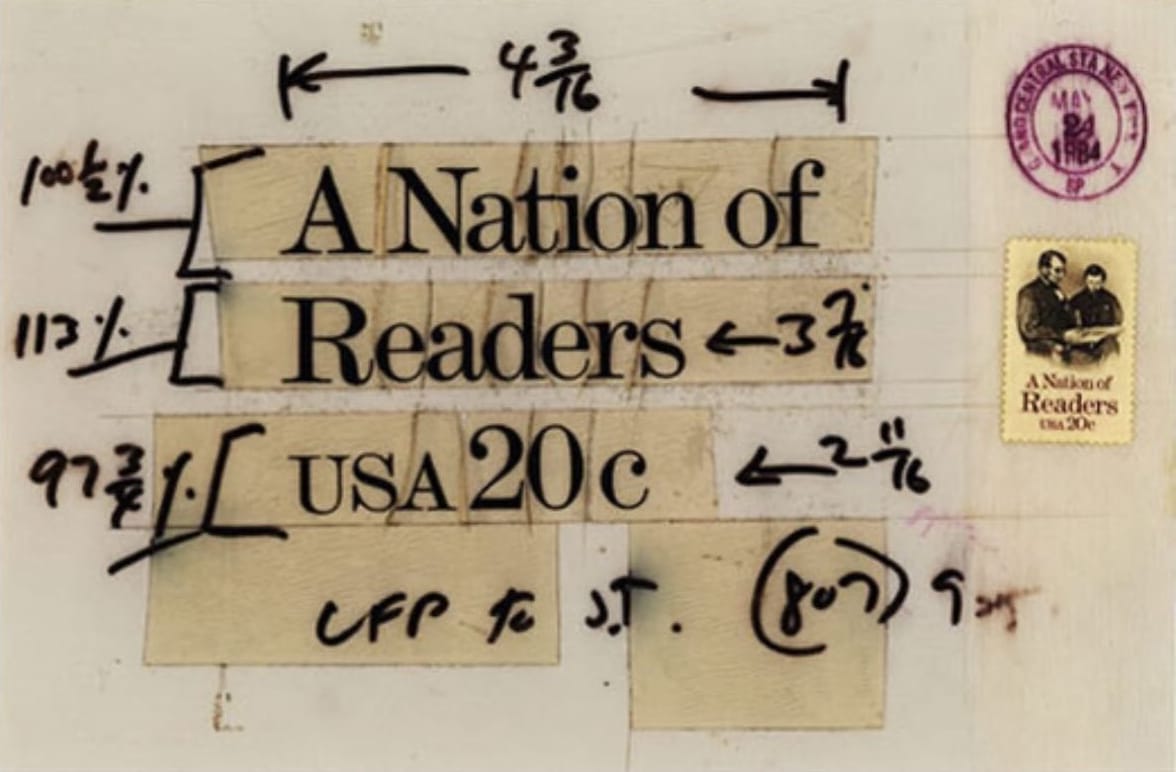 4 3/16
100 1/2 %.
A Nation of
113 %
Readers ← 3 7/8
97 3/4 %.
USA 20c ← 2 11/16
to J.T. (807)
GRAND CENTRAL STA. NEW YORK
MAY
24
1984
A Nation of
Readers
USA 20c